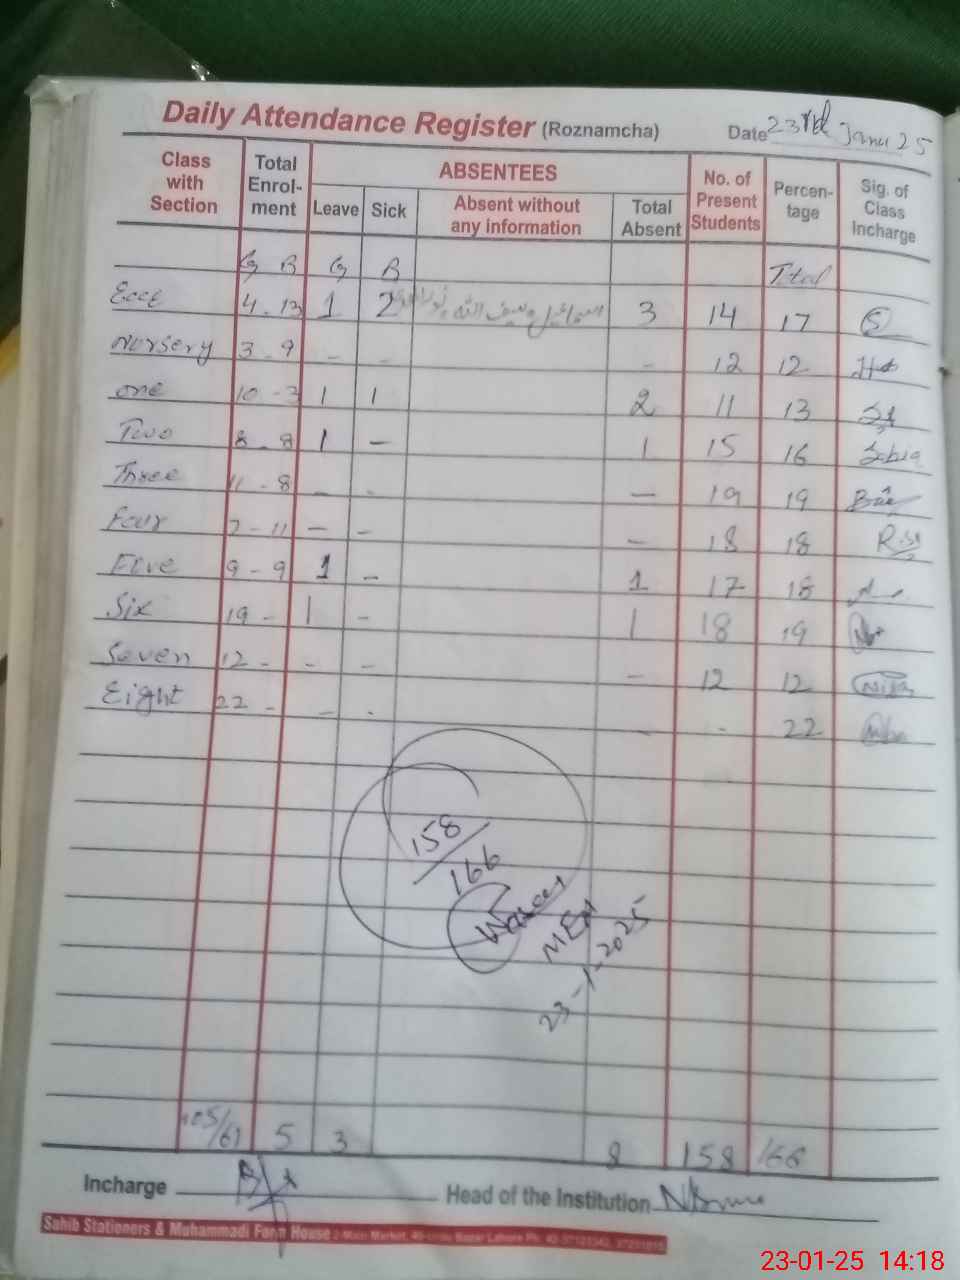 Daily Attendance Register (Roznamcha) Date 23rd Janu 25
Class with Section Total Enrol-ment ABSENTEES No. of Present Students Percen-tage Sig. of Class Incharge
Leave Sick Absent without any information Total Absent
G B G B Total
Ecce 4 - 13 1 2 3 14 17
Nursery 3 - 9 - - - 12 12
one 10 - 3 1 1 2 11 13
Two 8 - 8 1 - 1 15 16
Three 11 - 8 - - - 19 19
Four 7 - 11 - - - 18 18
Five 9 - 9 1 - 1 17 18
Six 19 - 1 - 1 18 19
Seven 12 - - - - 12 12
Eight 22 - - - - - 22
158
166
MEA
23-1-2025
105/61 5 3 8 158 166
Incharge Head of the Institution
Sahib Stationers & Muhammadi Form House
23-01-25 14:18